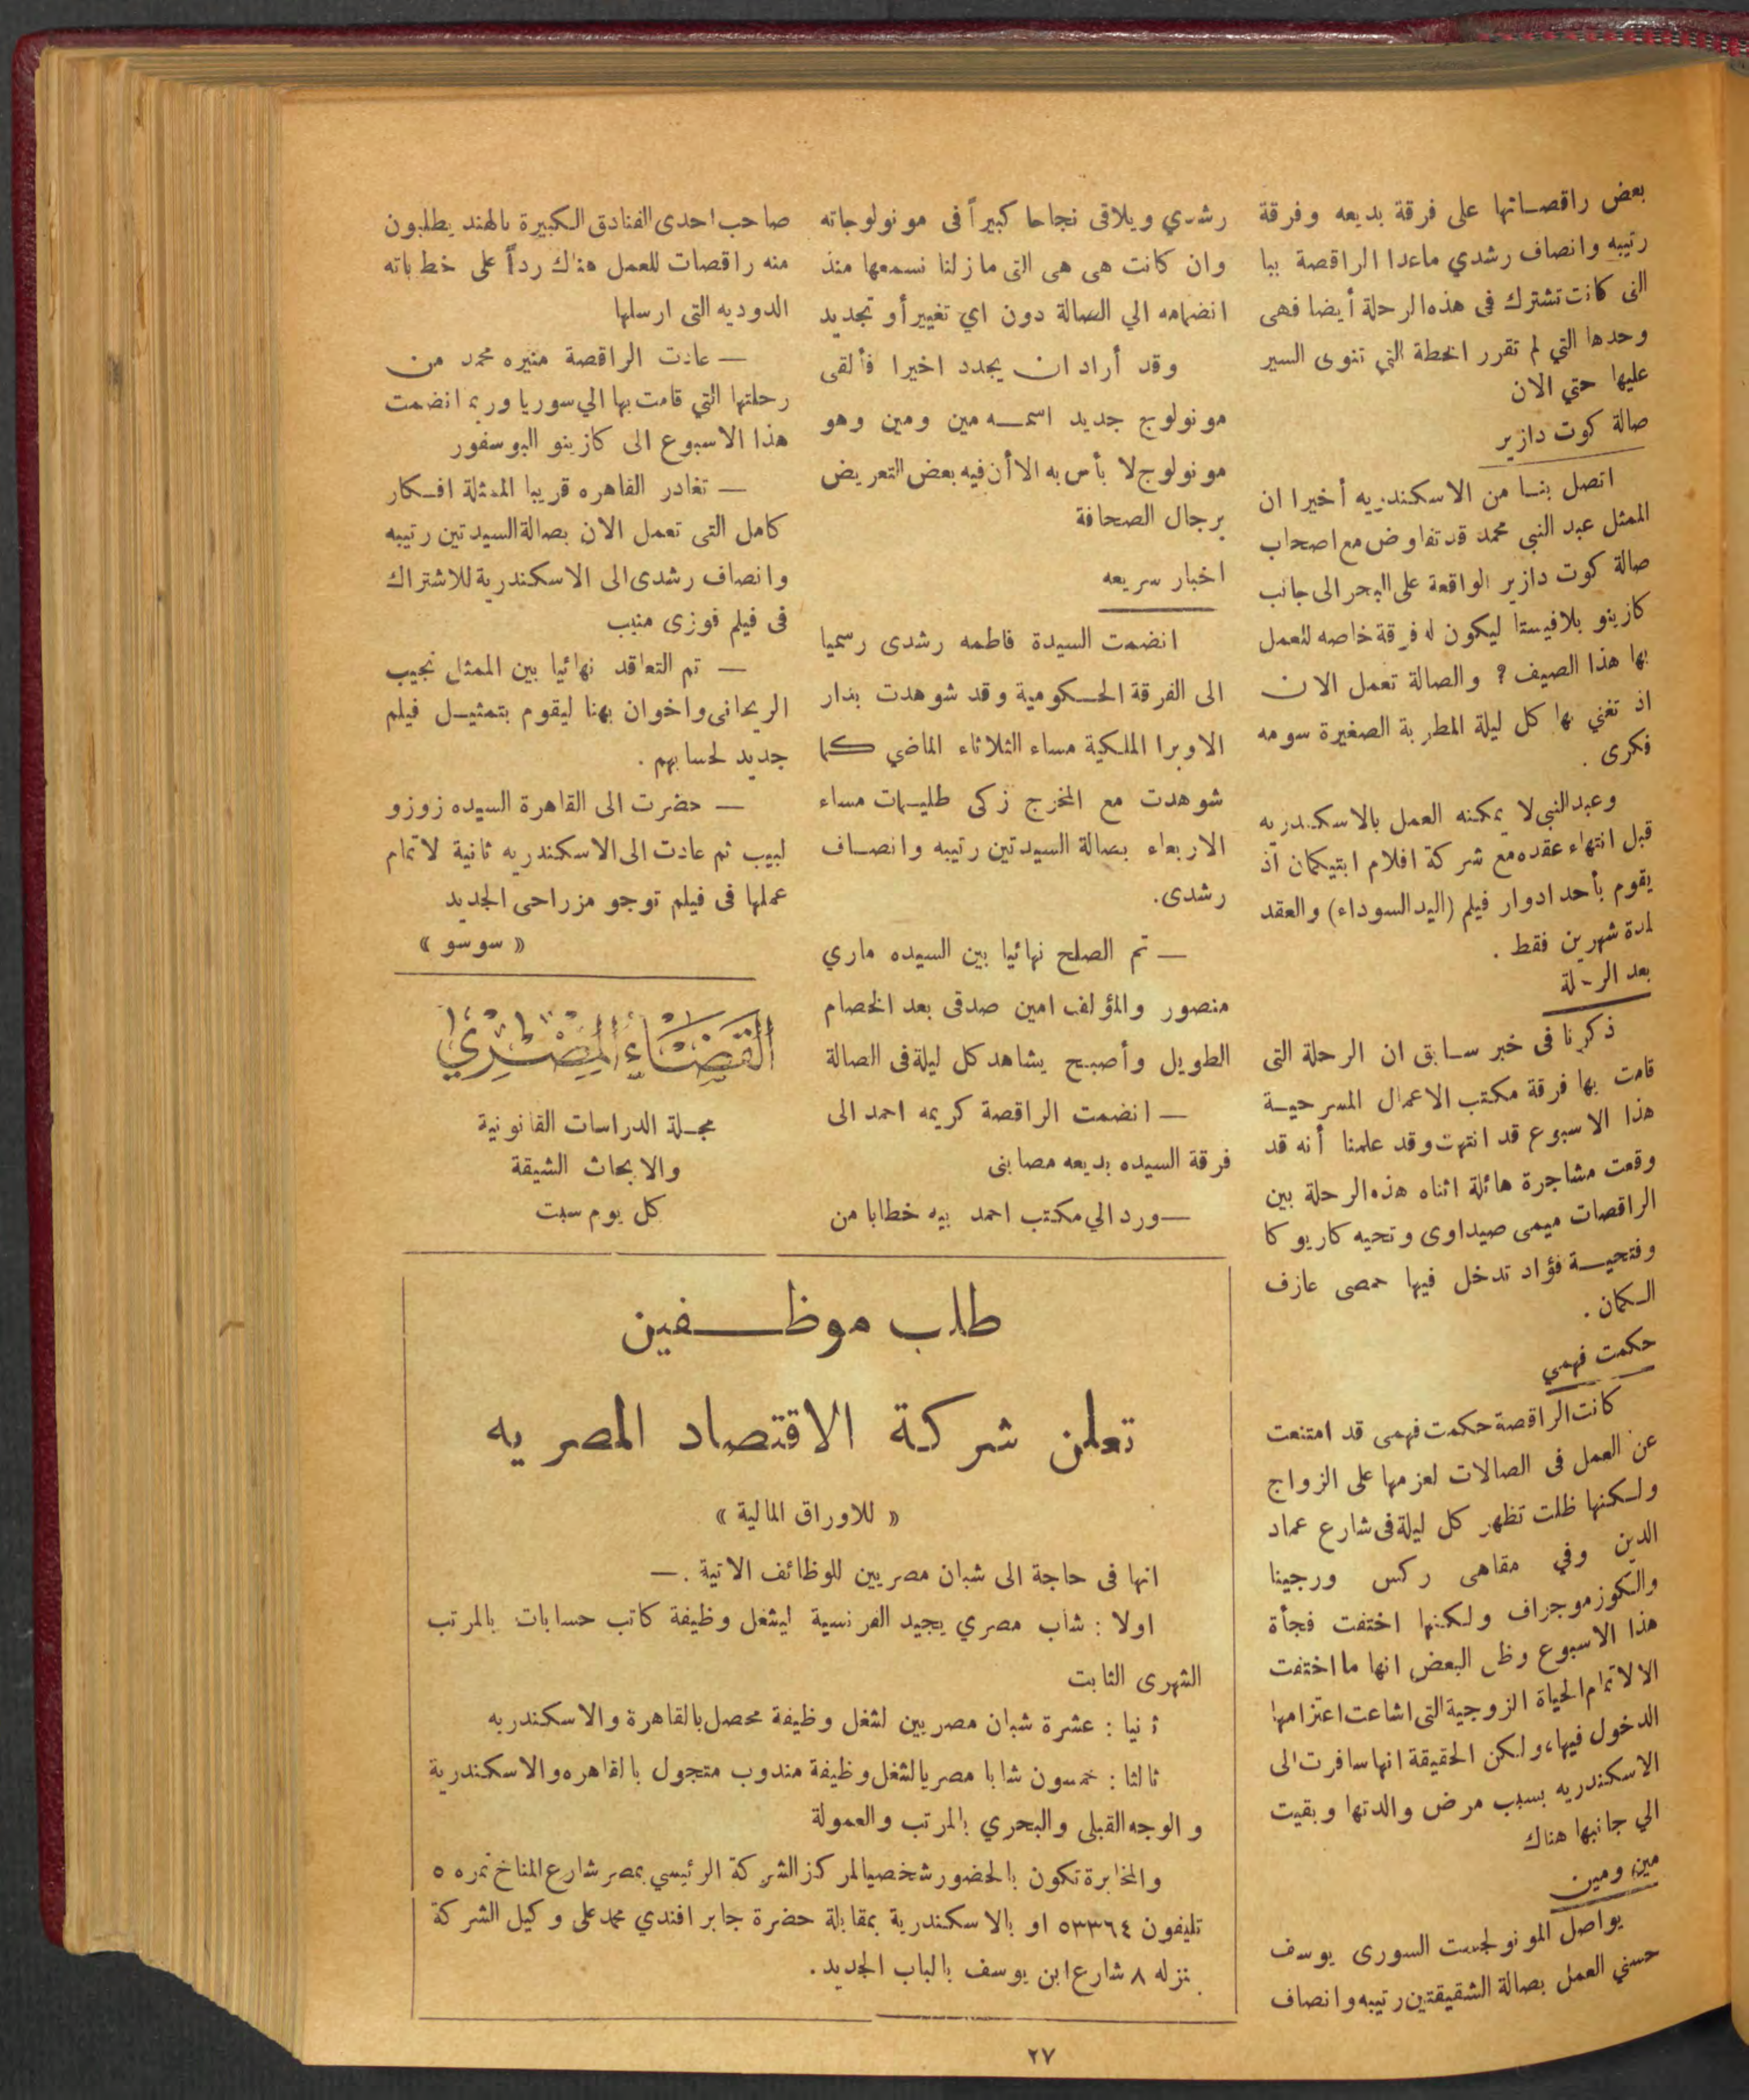 بعض راقصاتها على فرقة بديعه وفرقة
رتيبه وانصاف رشدي ماعدا الراقصة ببا
التى كانت تشترك فى هذه الرحلة أيضا فهى
وحدها التي لم تقرر الخطة التي تنوى السير
عليها حتي الان
صالة كوت دازير
اتصل بنا من الاسكندريه أخيرا ان
الممثل عبد النبى محمد قد تفاوض مع اصحاب
صالة كوت دازير الواقعة على البحر الى جانب
كازينو بلافيستا ليكون له فرقة خاصه للعمل
بها هذا الصيف ? والصالة تعمل الان
اذ تغني بها كل ليلة المطربة الصغيرة سومه
فكرى .
وعبد النبى لا يمكنه العمل بالاسكندريه
قبل انتهاء عقده مع شركة افلام ابتيكمان اذ
يقوم بأحد ادوار فيلم (اليد السوداء) والعقد
لمدة شهرين فقط .
بعد الرحلة
ذكرنا فى خبر سابق ان الرحلة التى
قامت بها فرقة مكتب الاعمال المسرحية
هذا الاسبوع قد انتهت وقد علمنا أنه قد
وقعت مشاجرة هائلة اثناه هذه الرحلة بين
الراقصات ميمى صيداوى وتحيه كاريوكا
وفتحية فؤاد تدخل فيها حمصى عازف
الكمان .
حكمت فهمي
كانت الراقصة حكمت فهمى قد امتنعت
عن العمل فى الصالات لعزمها على الزواج
ولكنها ظلت تظهر كل ليلة فى شارع عماد
الدين وفي مقاهى ركس ورجينا
والكوزموجراف ولكنها اختفت فجأة
هذا الاسبوع وظن البعض انها ما اختفت
الا لاتمام الحياة الزوجية التى اشاعت اعتزامها
الدخول فيها، ولكن الحقيقة انها سافرت الى
الاسكندريه بسبب مرض والدتها وبقيت
الي جانبها هناك
مين ومين
يواصل المونولجست السورى يوسف
حسني العمل بصالة الشقيقتين رتيبه وانصاف
رشدي ويلاقى نجاحا كبيراً فى مونولوجاته
وان كانت هى هى التى مازلنا نسمعها منذ
انضمامه الي الصالة دون اي تغيير أو تجديد
وقد أراد ان يجدد اخيرا فألقى
مونولوج جديد اسمه مين ومين وهو
مونولوج لا بأس به الا أن فيه بعض التعريض
برجال الصحافة
اخبار سريعه
انضمت السيدة فاطمه رشدى رسميا
الى الفرقة الحكومية وقد شوهدت بدار
الاوبرا الملكية مساء الثلاثاء الماضي كما
شوهدت مع المخرج زكى طليمات مساء
الاربعاء بصالة السيدتين رتيبه وانصاف
رشدى.
— تم الصلح نهائيا بين السيده ماري
منصور والمؤلف امين صدقى بعد الخصام
الطويل وأصبح يشاهد كل ليلة فى الصالة
— انضمت الراقصة كريمه احمد الى
فرقة السيده بديعه مصابنى
— ورد الي مكتب احمد بيه خطابا من
صاحب احدى الفنادق الكبيرة بالهند يطلبون
منه راقصات للعمل هناك رداً على خطاباته
الدوديه التى ارسلها
— عادت الراقصة منيره محمد من
رحلتها التي قامت بها الي سوريا وربما انضمت
هذا الاسبوع الى كازينو البوسفور
— تغادر القاهره قريبا الممثلة افكار
كامل التى تعمل الان بصالة السيدتين رتيبه
وانصاف رشدى الى الاسكندرية للاشتراك
فى فيلم فوزى منيب
— تم التعاقد نهائيا بين الممثل نجيب
الريحانى واخوان بهنا ليقوم بتمثيل فيلم
جديد لحسابهم .
— حضرت الى القاهرة السيده زوزو
لبيب ثم عادت الى الاسكندريه ثانية لاتمام
عملها فى فيلم توجو مزراحى الجديد
« سوسو »
القضاء المصري
مجلة الدراسات القانونية
والابحاث الشيقة
كل يوم سبت
طلب موظفين
تعلن شركة الاقتصاد المصريه
« للاوراق المالية »
انها فى حاجة الى شبان مصريين للوظائف الاتية . —
اولا : شاب مصري يجيد الفرنسية ليشغل وظيفة كاتب حسابات بالمرتب
الشهرى الثابت
ثانيا : عشرة شبان مصريين لشغل وظيفة محصل بالقاهرة والاسكندريه
ثالثا : خمسون شابا مصريا لشغل وظيفة مندوب متجول بالقاهره والاسكندرية
والوجه القبلى والبحري بالمرتب والعمولة
والمخابرة تكون بالحضور شخصيا لمركز الشركة الرئيسي بمصر شارع المناخ نمره ٥
تليفون ٥٣٣٦٤ او بالاسكندرية بمقابلة حضرة جابر افندي محمد على وكيل الشركة
بمنزله ٨ شارع ابن يوسف بالباب الجديد.
٢٧